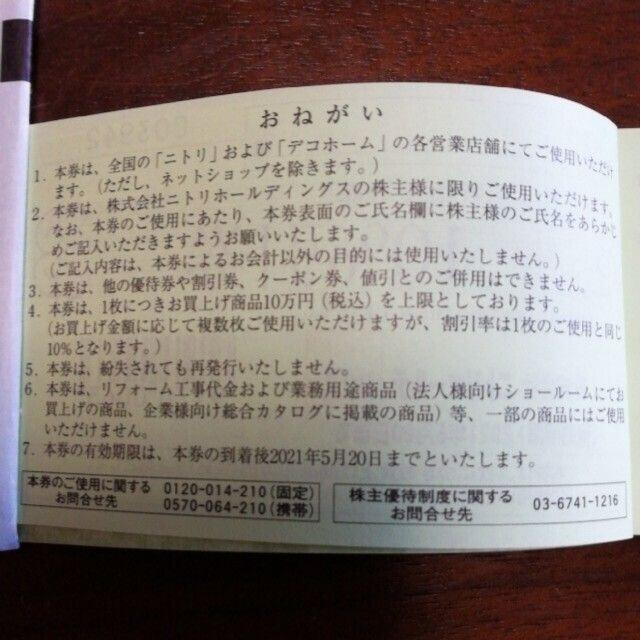 おねがい
1. 本券は、全国の「ニトリ」および「デコホーム」の各営業店舗にてご使用いただけ
ます。(ただし、ネットショップを除きます。)
2. 本券は、株式会社ニトリホールディングスの株主様に限りご使用いただけます。
なお、本券のご使用にあたり、本券表面のご氏名欄に株主様のご氏名をあらかじ
めご記入いただきますようお願いいたします。
(ご記入内容は、本券によるお会計以外の目的には使用いたしません。)
3. 本券は、他の優待券や割引券、クーポン券、値引とのご併用はできません。
4. 本券は、1枚につきお買上げ商品10万円(税込)を上限としております。
(お買上げ金額に応じて複数枚ご使用いただけますが、割引率は1枚のご使用と同じ
10%となります。)
5. 本券は、紛失されても再発行いたしません。
6. 本券は、リフォーム工事代金および業務用途商品(法人様向けショールームにてお
買上げの商品、企業様向け総合カタログに掲載の商品)等、一部の商品にはご使用
いただけません。
7. 本券の有効期限は、本券の到着後2021年5月20日までといたします。
本券のご使用に関する
お問合せ先
0120-014-210(固定)
0570-064-210(携帯)
株主優待制度に関する
お問合せ先
03-6741-1216